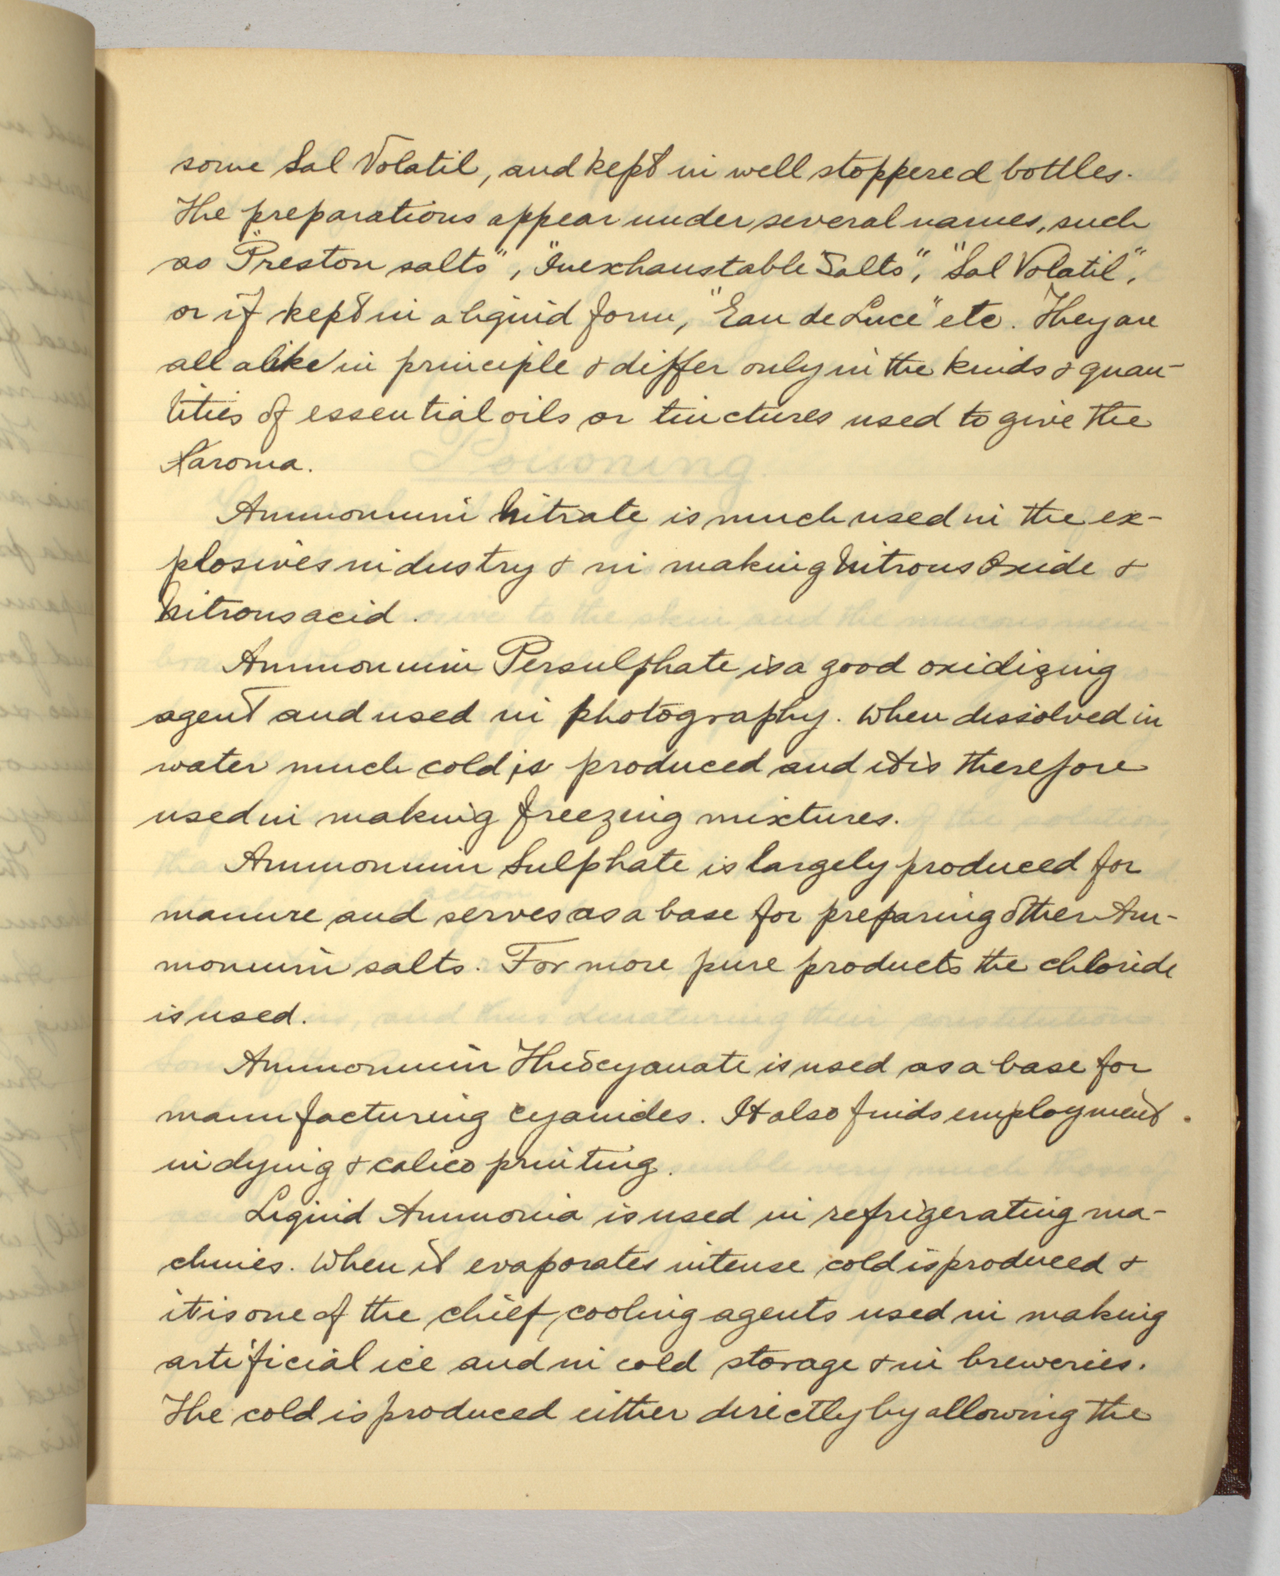 some Sal Volatil, and kept in well stoppered bottles.
The preparations appear under several names, such
as "Preston salts", "Inexhaustable Salts", "Sal Volatil",
or if kept in a liquid form, "Eau de Luce" etc. They are
all alike in principle & differ only in the kinds & quan-
tities of essential oils or tinctures used to give the
aroma.
Ammonium Nitrate is much used in the ex-
plosives industry & in making Nitrous Oxide &
Nitrous acid.
Ammonium Persulphate is a good oxidizing
agent and used in photography. When dissolved in
water much cold is produced and it is therefore
used in making freezing mixtures.
Ammonium Sulphate is largely produced for
manure and serves as a base for preparing other Am-
monium salts. For more pure products the chloride
is used.
Ammonium Thiocyanate is used as a base for
manufacturing Cyanides. It also finds employment
in dying & calico printing.
Liquid Ammonia is used in refrigerating ma-
chines. When it evaporates intense cold is produced &
it is one of the chief cooling agents used in making
artificial ice and in cold storage & in breweries.
The cold is produced either directly by allowing the